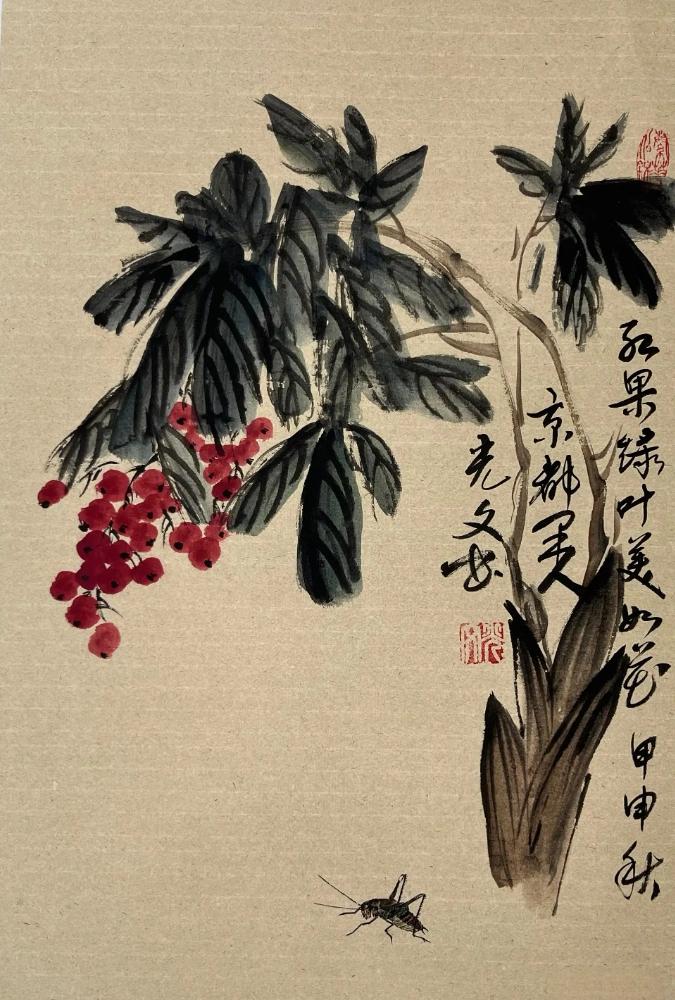 红果绿叶美如花 甲申秋
京都墨人
光文书